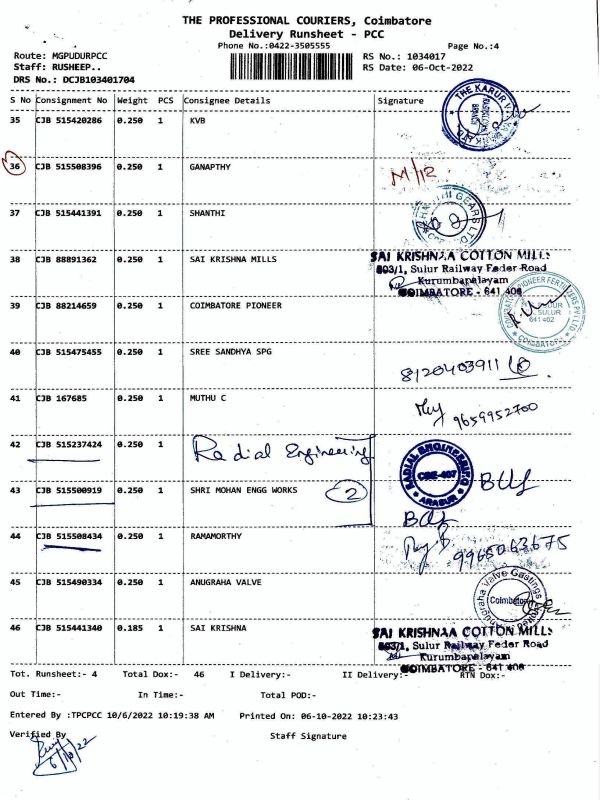 THE PROFESSIONAL COURIERS, Coimbatore
Delivery Runsheet - PCC
Phone No.:0422-3505555 Page No.:4
Route: MGPUDURPCC RS No.: 1034017
Staff: RUSHEEP.. RS Date: 06-Oct-2022
DRS No.: DCJB103401704
S No Consignment No Weight PCS Consignee Details Signature
35 CJB 515420286 0.250 1 KVB
THE KARUR
36 CJB 515508396 0.250 1 GANAPTHY M/12
37 CJB 515441391 0.250 1 SHANTHI
GEARS LTD
38 CJB 88891362 0.250 1 SAI KRISHNA MILLS
SAI KRISHNAA COTTON MILLS
603/1, Sulur Railway Feder Road
Kurumbapalayam
COIMBATORE - 641 406
39 CJB 88214659 0.250 1 COIMBATORE PIONEER
COIMBATORE PIONEER FERTILIZERS PVT LTD.
SULUR
641 402
COIMBATORE
40 CJB 515475455 0.250 1 SREE SANDHYA SPG
8120403911
41 CJB 167685 0.250 1 MUTHU C
9659952700
42 CJB 515237424 0.250 1 Radial Engineering
RADIAL ENGINEERING
CBE-407
ARASUR
43 CJB 515500919 0.250 1 SHRI MOHAN ENGG WORKS 2
44 CJB 515508434 0.250 1 RAMAMORTHY
9965063675
45 CJB 515490334 0.250 1 ANUGRAHA VALVE
Anugraha Valve Castings
Coimbatore
46 CJB 515441340 0.185 1 SAI KRISHNA
SAI KRISHNAA COTTON MILLS
603/1, Sulur Railway Feder Road
Kurumbapalayam
COIMBATORE - 641 406
Tot. Runsheet:- 4 Total Dox:- 46 I Delivery:- II Delivery:- RTN Dox:-
Out Time:- In Time:- Total POD:-
Entered By :TPCPCC 10/6/2022 10:19:38 AM Printed On: 06-10-2022 10:23:43
Verified By Staff Signature
6/10/22